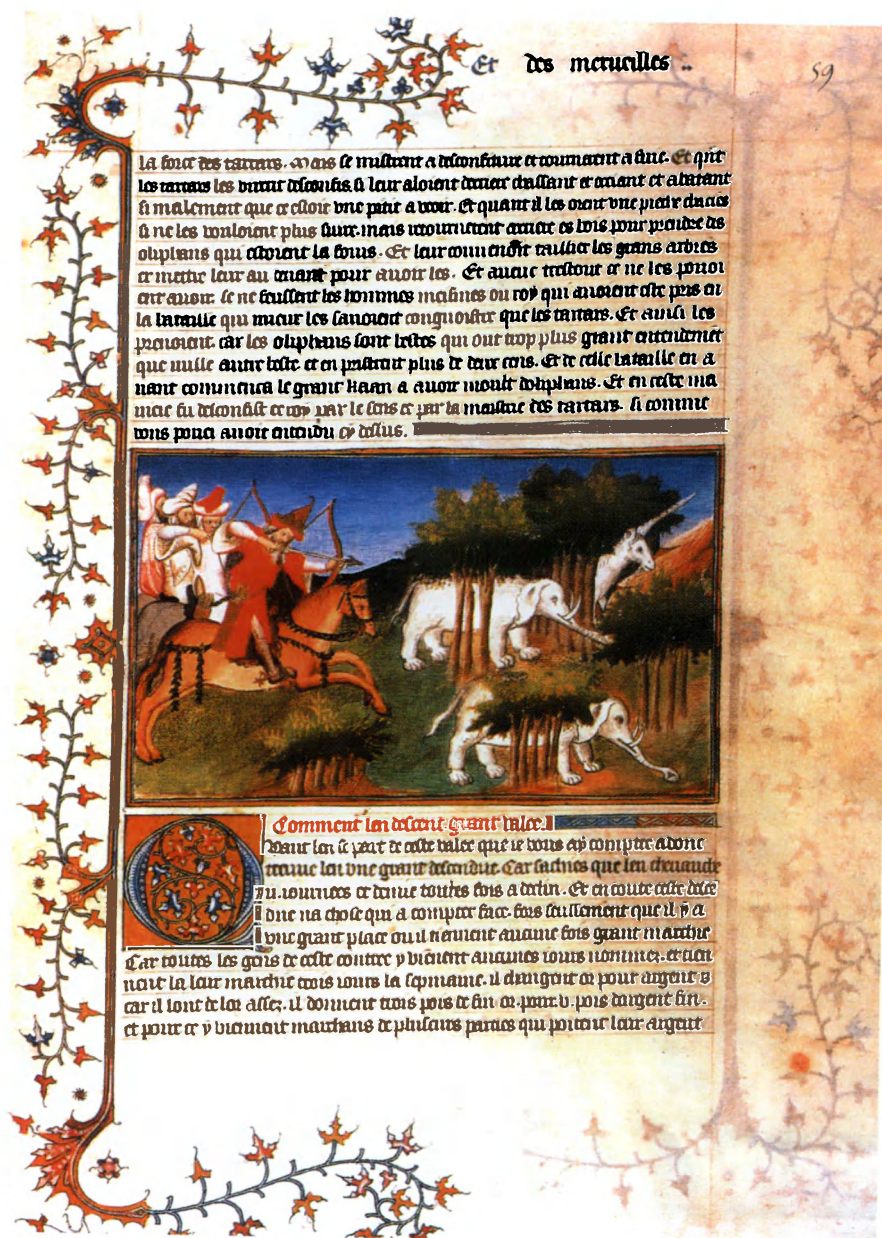 Et des merueilles ..
59
la force des tartars. Mais se mistrent a desconfiture et tournerent a fuie. Et qnt
les tartars les virent desconfis si leur aloient derrier chassant et criant et abatant
si malement que cestoit vne pitie a veoir. Et quant il les orent vne piece chacies
si ne les vouloient plus suire. mais retournerent arriere es bois pour prendre des
oliphans qui estoient la fouis. Et leur conuenoit taillier les grans arbres
et mettre leur au deuant pour auoir les. Et auec trestout ce ne les pouoi
ent auoir se ne feussent les hommes meismes du roy qui auoient este pris en
la bataille qui mieux les sauoient congnoistre que les tartars. Et ainsi les
prenoient. car les oliphans sont bestes qui ont trop plus grant entendemet
que nulle autre beste. et en pristrent plus de deux cens. Et de celle bataille en a
uant commenca le grant kaan a auoir moult doliphans. Et en ceste ma
niere fu desconfist ce roy par le sens et par la maistrie des tartars. si comme
vous pouez auoir entendu cy dessus.
Comment len descent grant valee.
Quant len se part de ceste valee que ie vous ay comptee adonc
treuue len vne grant descendue. Car sachies que len cheuauche
.ii. iournees et demie toutes fois a declin. Et en toute ceste desce
due na chose qui a compter face. fors seullement que il y a
vne grant place ou il tiennent aucune fois grant marchie
Car toutes les gens de ceste contree y vienent aucunes iours nommez. et tien
nent la leur marchie trois iours la sepmaine. il changent or pour argent
car il sont de lor assez. il donnent trois pois de fin or. pour .v. pois dargent fin.
et pour ce y viennent marchans de plusieurs parties qui portent leur argent